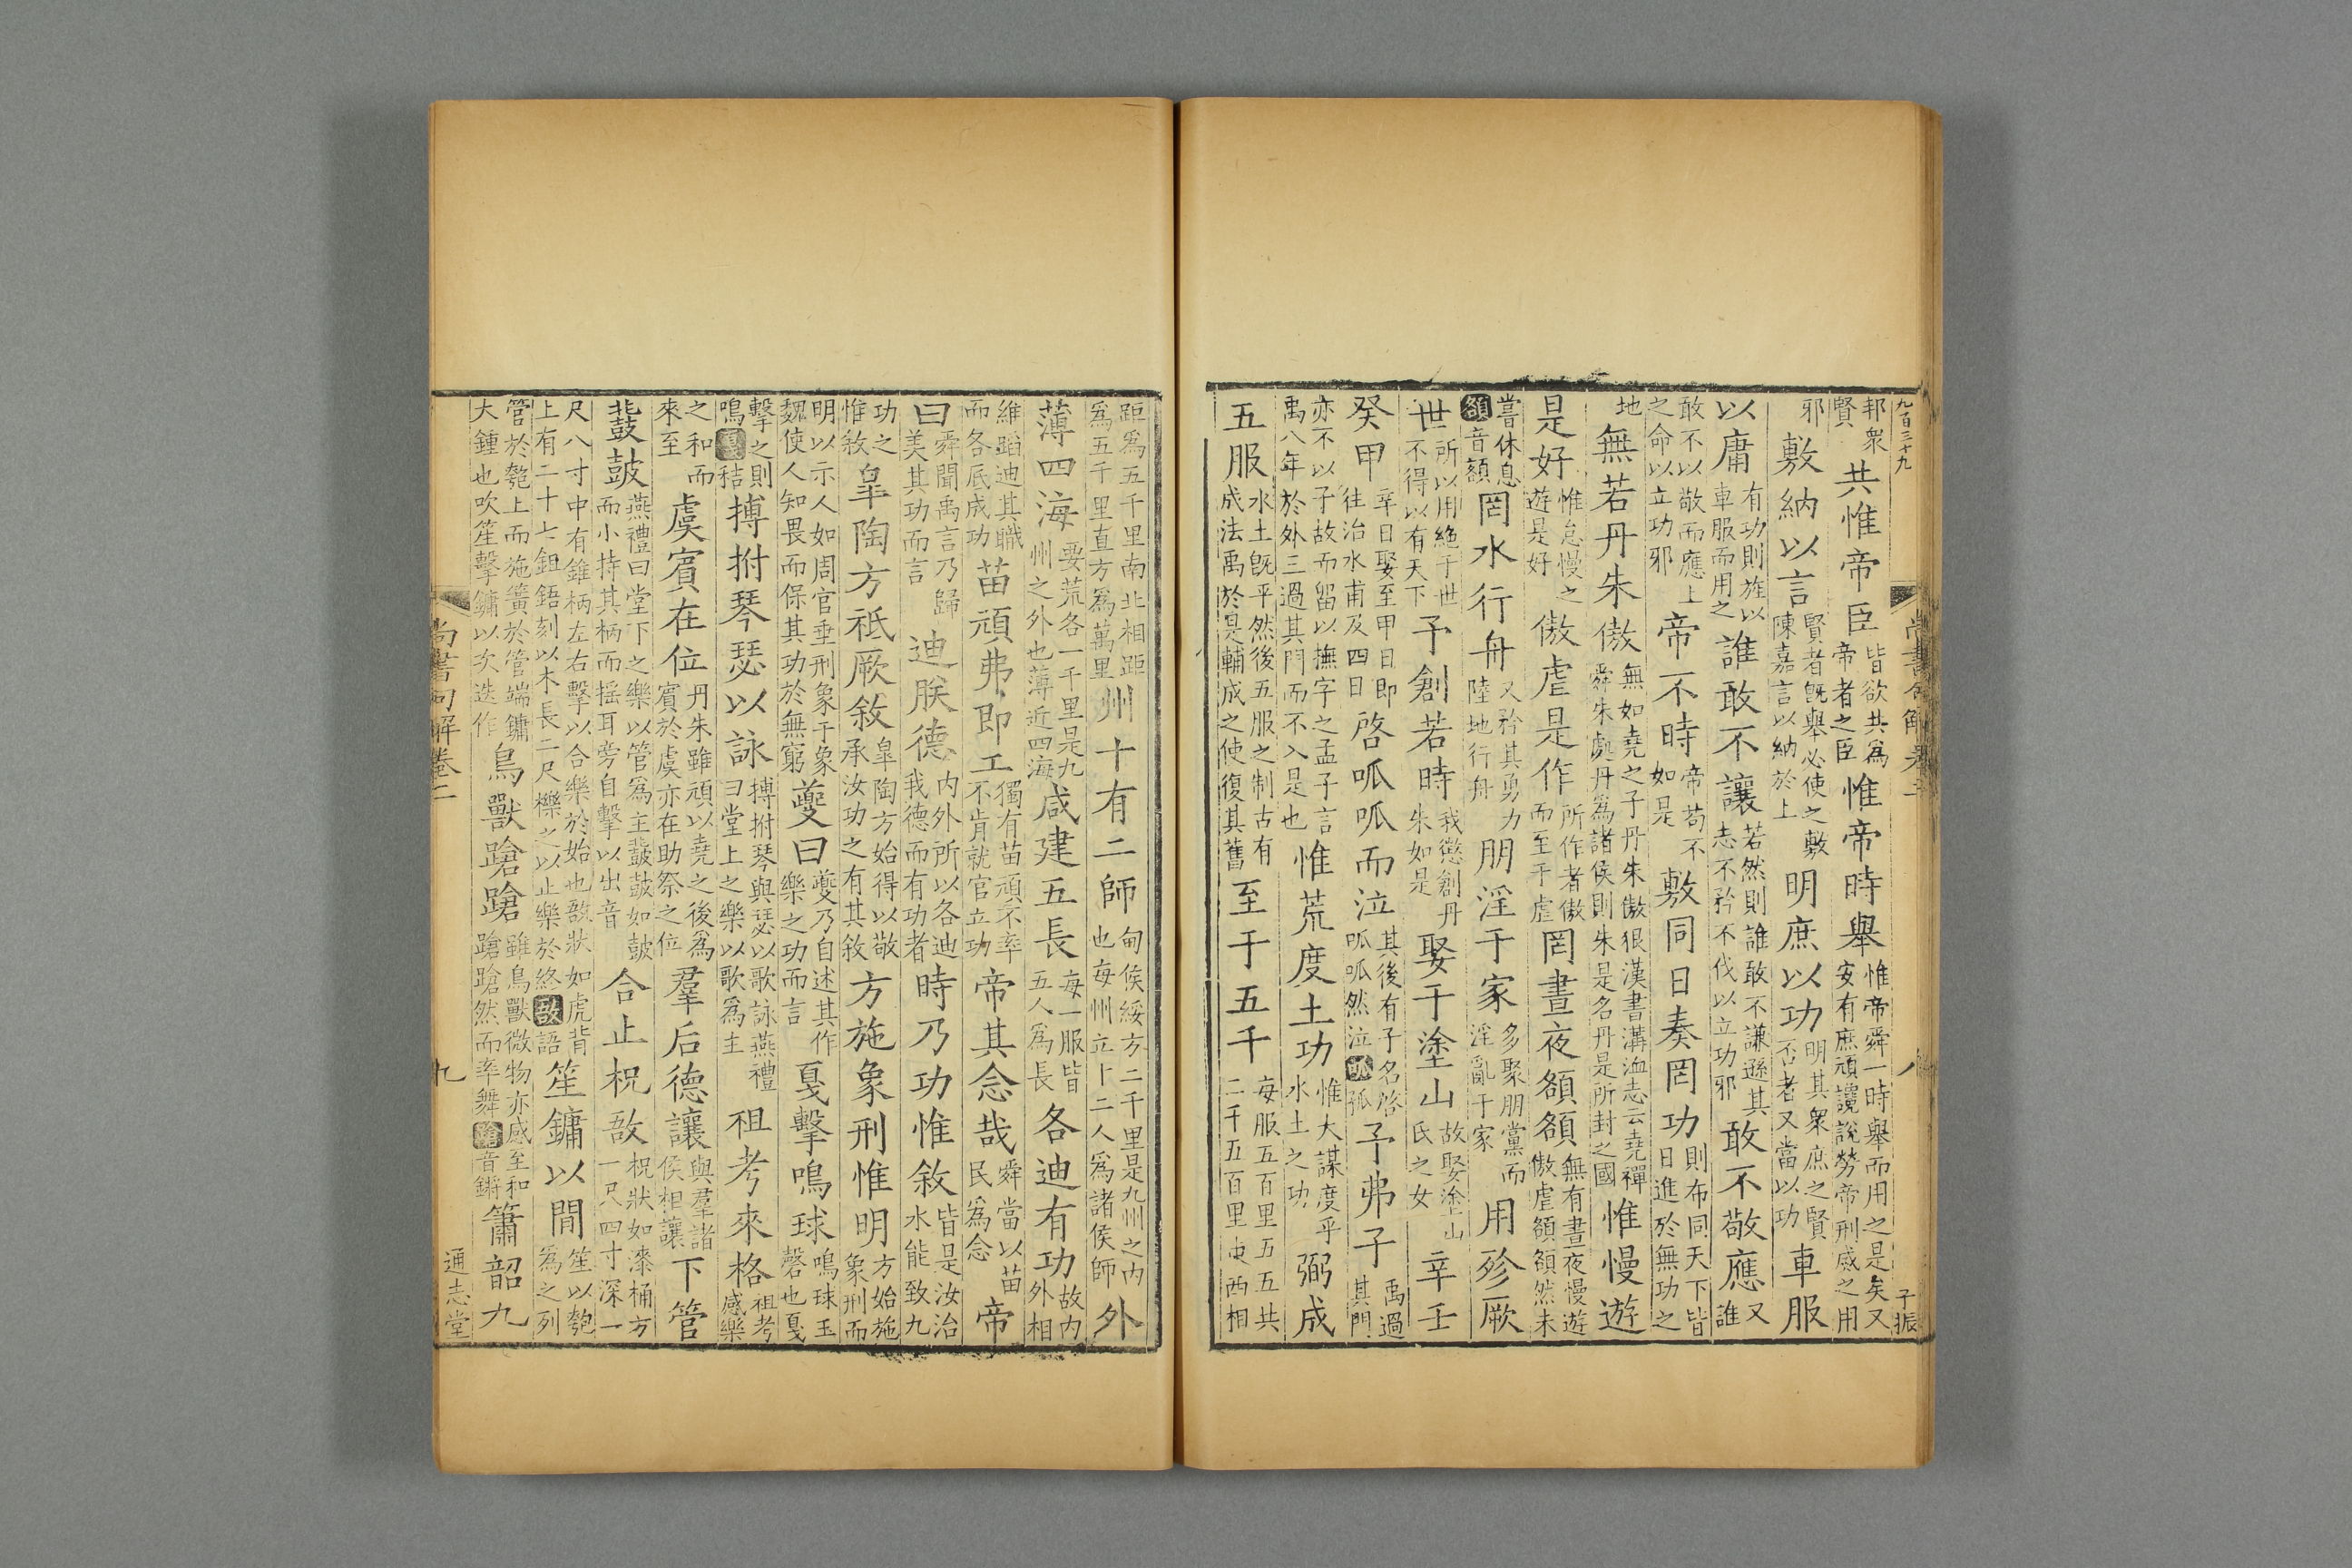 九百三十九 尚書句解卷二 八 子振
邦衆賢共惟帝臣皆欲共爲帝者之臣惟帝時舉惟帝舜一時舉而用之是矣又安有庶頑讒說勞帝刑威之用
邪敷納以言賢者旣舉必使之敷陳嘉言以納於上明庶以功明其衆庶之賢否者又當以功車服
以庸有功則旌以車服而用之誰敢不讓若然則誰敢不謙遜其志不矜不伐以立功邪敢不敬應又誰
敢不以敬而應上之命以立功邪帝不時帝苟不如是敷同日奏罔功則布同天下皆日進於無功之
地無若丹朱傲無如堯之子丹朱傲狠漢書溝洫志云堯禪舜朱處丹爲諸侯則朱是名丹是所封之國惟慢遊
是好惟怠慢之遊是好傲虐是作所作者傲而至于虐罔晝夜頟頟無有晝夜慢遊傲虐頟頟然未
嘗休息頟音額罔水行舟又矜其勇力陸地行舟朋淫于家多聚朋黨而淫亂于家用殄厥
世所以用絶于世不得以有天下予創若時我懲創丹朱如是娶于塗山故娶塗山氏之女辛壬
癸甲辛日娶至甲日即往治水甫及四日啓呱呱而泣其後有子名啓呱呱然泣呱孤予弗子禹過其門
亦不以子故而留以撫字之孟子言禹八年於外三過其門而不入是也惟荒度土功惟大謀度乎水土之功弼成
五服水土旣平然後五服之制古有成法禹於是輔成之使復其舊至于五千每服五百里五五共二千五百里東西相
距爲五千里南北相距爲五千里直方爲萬里州十有二師甸侯綏方二千里是九州之內也每州立十二人爲諸侯師外
薄四海要荒各一千里是九州之外也薄近四海咸建五長每一服皆五人爲長各迪有功故內外相
維蹈迪其職而各厎成功苗頑弗即工獨有苗頑不率不肯就官立功帝其念哉舜當以苗民爲念帝
曰舜聞禹言乃歸美其功而言迪朕德內外所以各迪我德而有功者時乃功惟敘皆是汝治水能致九
功之惟敘皐陶方祗厥敘皐陶方始得以敬承汝功之有其敘方施象刑惟明方始施象刑而
明以示人如周官垂刑象于象魏使人知畏而保其功於無窮夔曰夔乃自述其作樂之功而言戛擊鳴球鳴球玉磬也戛
擊之則鳴戛秸搏拊琴瑟以詠搏拊琴與瑟以歌詠燕禮曰堂上之樂以歌爲主祖考來格祖考感樂
之和而來至虞賓在位丹朱雖頑以堯之後爲賓於虞亦在助祭之位羣后德讓與羣諸侯相讓下管
鼗鼓燕禮曰堂下之樂以管爲主鼗鼓如鼓而小持其柄而搖耳旁自擊以出音合止柷敔柷狀如漆桶方一尺四寸深一
尺八寸中有錐柄左右擊以合樂於始也敔狀如虎背上有二十七鉏鋙刻以木長二尺櫟之以止樂於終敔語笙鏞以間笙以匏爲之列
管於匏上而施簧於管端鏞大鍾也吹笙擊鏞以次迭作鳥獸蹌蹌雖鳥獸微物亦感至和蹌蹌然而率舞蹌音鏘簫韶九
尚書句解卷二 九 通志堂